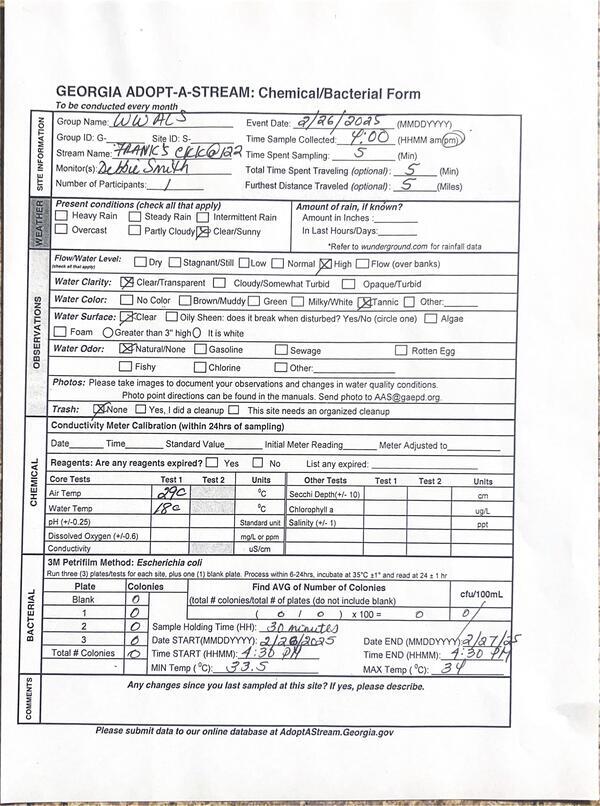 GEORGIA ADOPT-A-STREAM: Chemical/Bacterial Form
To be conducted every month
SITE INFORMATION
Group Name: WWALS Event Date: 2/26/2025 (MMDDYYYY)
Group ID: G- Site ID: S- Time Sample Collected: 4:00 (HHMM am pm)
Stream Name: FRANK'S CRK@122 Time Spent Sampling: 5 (Min)
Monitor(s): Debbie Smith Total Time Spent Traveling (optional): 5 (Min)
Number of Participants: 1 Furthest Distance Traveled (optional): 5 (Miles)
WEATHER
Present conditions (check all that apply) Amount of rain, if known?
Heavy Rain Steady Rain Intermittent Rain Amount in Inches:
Overcast Partly Cloudy Clear/Sunny In Last Hours/Days:
*Refer to wunderground.com for rainfall data
OBSERVATIONS
Flow/Water Level: Dry Stagnant/Still Low Normal High Flow (over banks)
(check all that apply)
Water Clarity: Clear/Transparent Cloudy/Somewhat Turbid Opaque/Turbid
Water Color: No Color Brown/Muddy Green Milky/White Tannic Other:
Water Surface: Clear Oily Sheen: does it break when disturbed? Yes/No (circle one) Algae
Foam Greater than 3" high It is white
Water Odor: Natural/None Gasoline Sewage Rotten Egg
Fishy Chlorine Other:
Photos: Please take images to document your observations and changes in water quality conditions.
Photo point directions can be found in the manuals. Send photo to AAS@gaepd.org.
Trash: None Yes, I did a cleanup This site needs an organized cleanup
CHEMICAL
Conductivity Meter Calibration (within 24hrs of sampling)
Date Time Standard Value Initial Meter Reading Meter Adjusted to
Reagents: Are any reagents expired? Yes No List any expired:
Core Tests Test 1 Test 2 Units Other Tests Test 1 Test 2 Units
Air Temp 29c °C Secchi Depth(+/- 10) cm
Water Temp 18c °C Chlorophyll a ug/L
pH (+/-0.25) Standard unit Salinity (+/- 1) ppt
Dissolved Oxygen (+/-0.6) mg/L or ppm
Conductivity uS/cm
BACTERIAL
3M Petrifilm Method: Escherichia coli
Run three (3) plates/tests for each site, plus one (1) blank plate. Process within 6-24hrs, incubate at 35°C ±1° and read at 24 ± 1 hr
Plate Colonies Find AVG of Number of Colonies cfu/100mL
Blank 0 (total # colonies/total # of plates (do not include blank)
1 0 ( 0/0 ) x 100 = 0 0/
2 0 Sample Holding Time (HH): 30 minutes
3 0 Date START(MMDDYYYY): 2/26/2025 Date END (MMDDYYYY): 2/27/25
Total # Colonies 0 Time START (HHMM): 4:30 PM Time END (HHMM): 4:30 PM
MIN Temp (°C): 33.5 MAX Temp (°C): 34
COMMENTS
Any changes since you last sampled at this site? If yes, please describe.
Please submit data to our online database at AdoptAStream.Georgia.gov